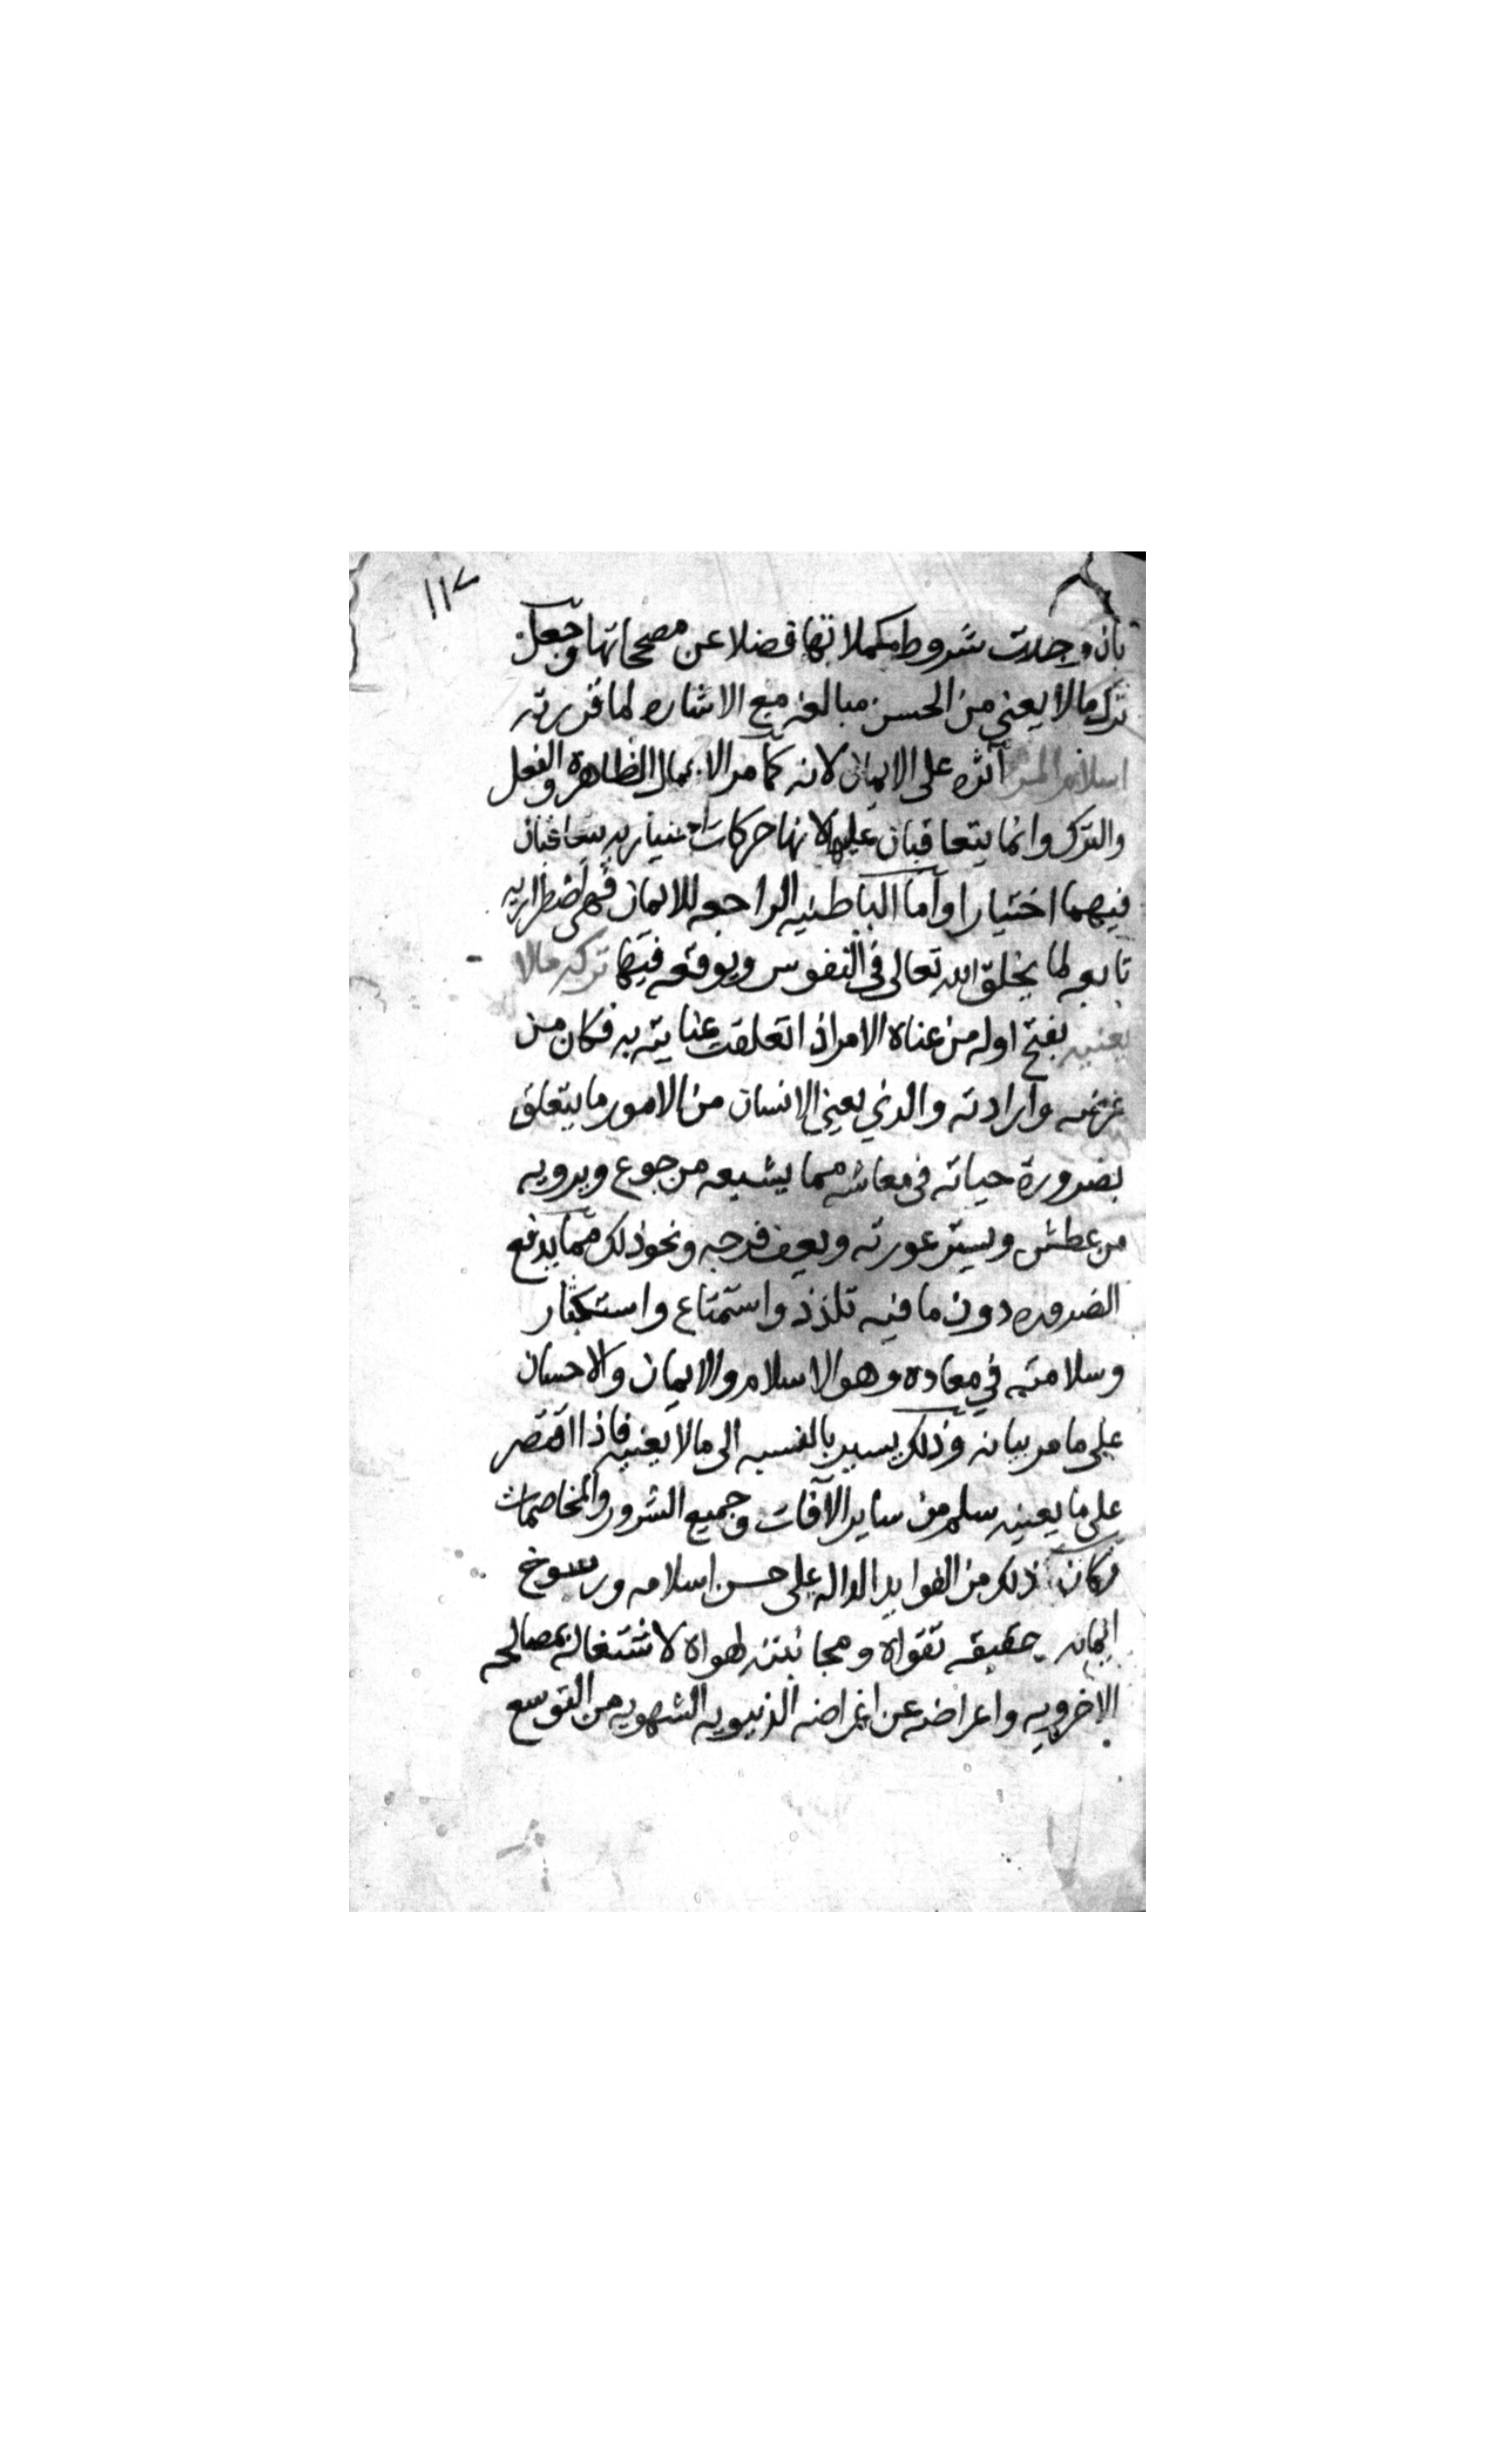 ١١٧
بان وجدت شروط مكملاتها فضلا عن مصححاتها وجعل
ترك ما لا يعني من الحسن مبالغه مع الاشاره لما قررته
اسلام المرء آثره على الايمان لانه كما مر الاعمال الظاهرة والفعل
والترك وانما يتعاقبان عليها لانها حركات اختياريه يتعاقبان
فيهما اختيارا واما الباطنيه الراجعه للايمان فهي اضطراريه
تابعه لما يخلق الله تعالى في النفوس ويوقعه فيها تركه مالا
يعنيه بفتح اوله من عناه الامر اذا تعلقت عنايته به فكان من
غرضه وارادته والذي يعني الانسان من الامور ما يتعلق
بضرورة حياته في معاشه مما يشبعه من جوع ويرويه
من عطش ويستر عورته ويعف فرجه ونحو ذلك مما يدفع
الضروره دون ما فيه تلذذ واستمتاع واستكثار
وسلامته في معاده وهو الاسلام والايمان والاحسان
على ما مر بيانه وذلك يسير بالنسبه الى ما لا يعنيه فاذا اقتصر
على ما يعنيه سلم من ساير الآفات وجميع الشرور والمخاصمات
فكان ذلك من الفوايد الداله على حسن اسلامه ورسوخ
ايمانه حقيقه تقواه ومجانبته لهواه لاشتغاله بمصالحه
الاخرويه واعراضه عن اغراضه الدنيويه الشهويه من التوسع